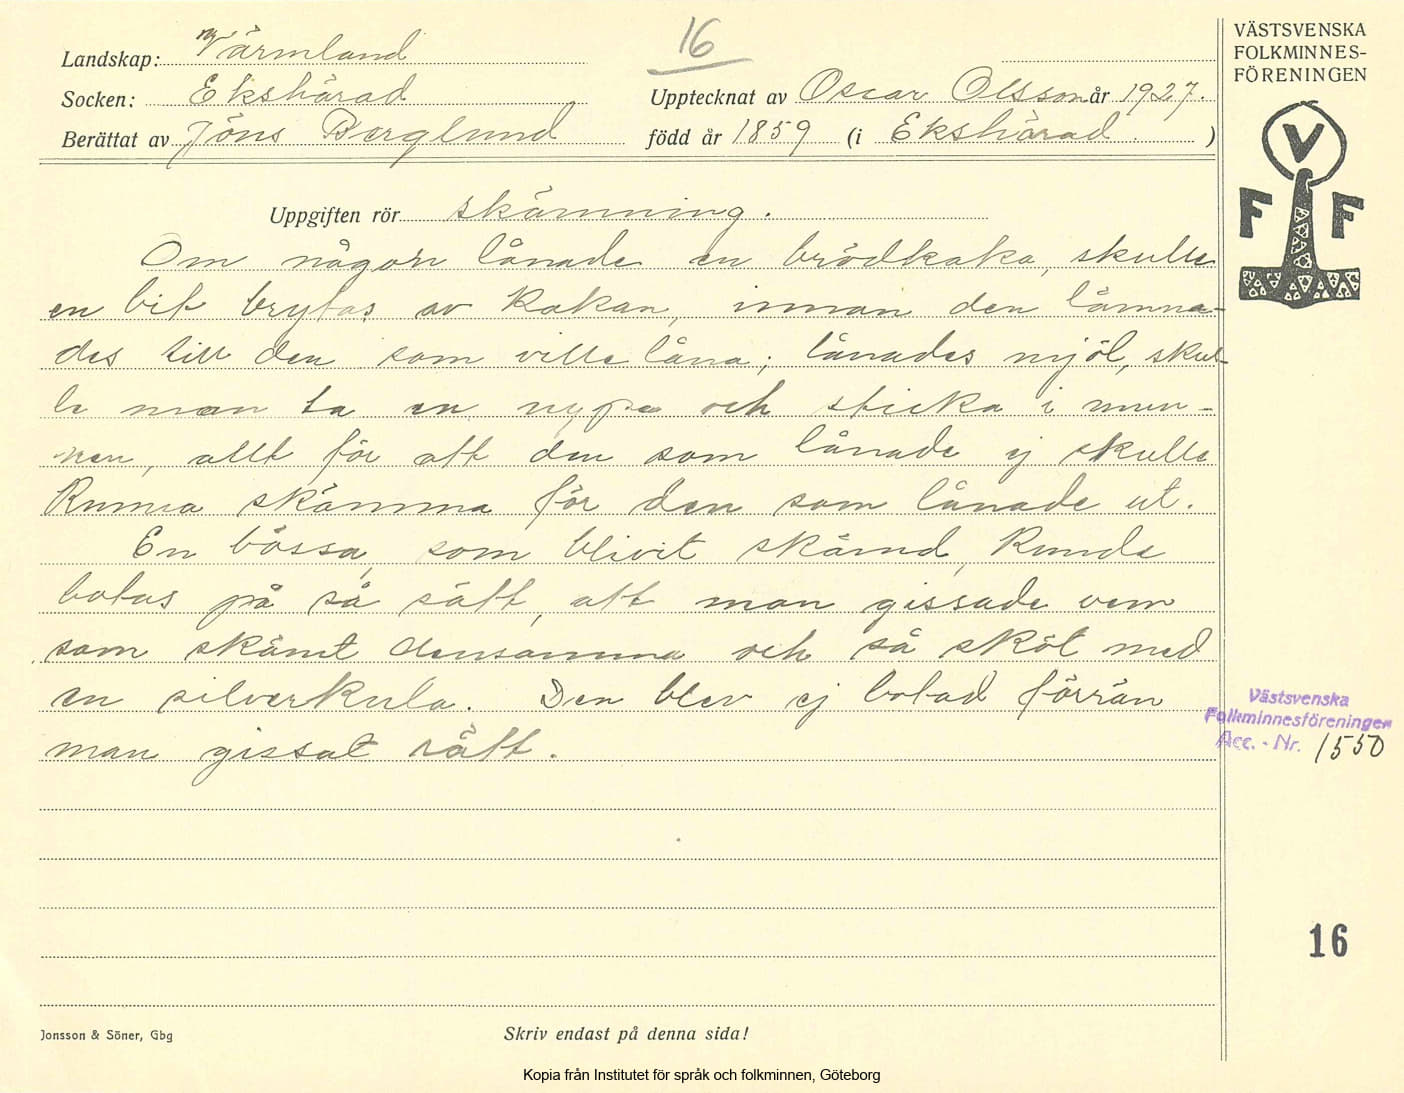 Landskap: Värmland
16
Socken: Ekshärad
Upptecknat av Oscar Olsson år 1927.
Berättat av Jöns Berglund född år 1859 (i Ekshärad )
VÄSTSVENSKA
FOLKMINNES-
FÖRENINGEN
V
F F
Uppgiften rör skämning.
Om någon lånade en brödkaka, skulle
en bit brytas av kakan, innan den lämna-
des till den som ville låna; lånades mjöl, skul-
le man ta en nypa och sticka i mun-
nen, allt för att den som lånade ej skulle
kunna skämma för den som lånade ut.
En bössa, som blivit skämd, kunde
botas på så sätt, att man gissade vem
som skämt densamma och så sköt med
en silverkula. Den blev ej botad förrän
man gissat rätt.
Västsvenska
Folkminnesföreningen
Acc. - Nr. 1550
16
Jonsson & Söner, Gbg
Skriv endast på denna sida!
Kopia från Institutet för språk och folkminnen, Göteborg